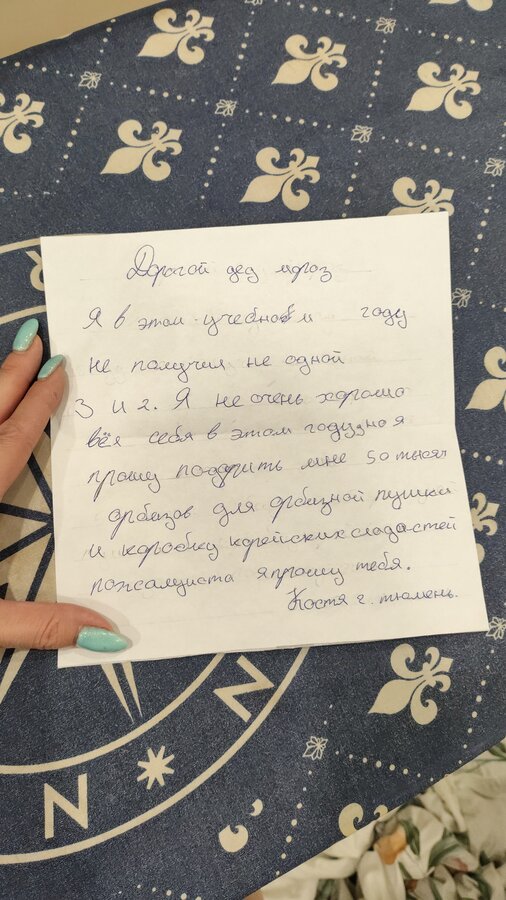 Дорогой дед мороз
Я в этом учебном году
не получил не одной
3 и 2. Я не очень хорошо
вёл себя в этом году, но я
прошу подрить мне 50 тысяч
орбизов для орбизной пушки
и коробку корейских сладастей
пожалуиста я прошу тебя.
Костя г. тюмень.
N
N